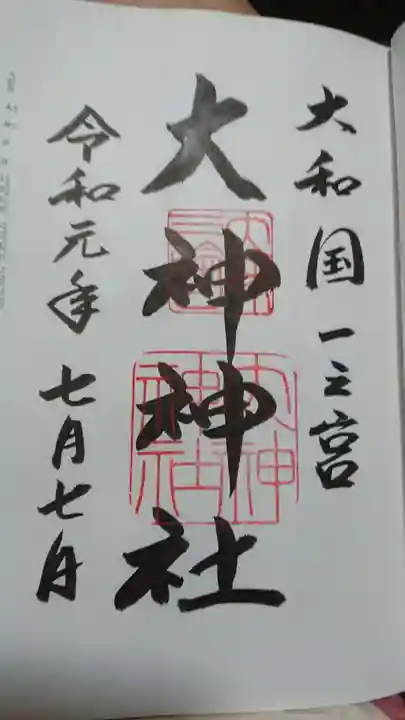 大和国一之宮
大神神社
令和元年七月七日
大神神社